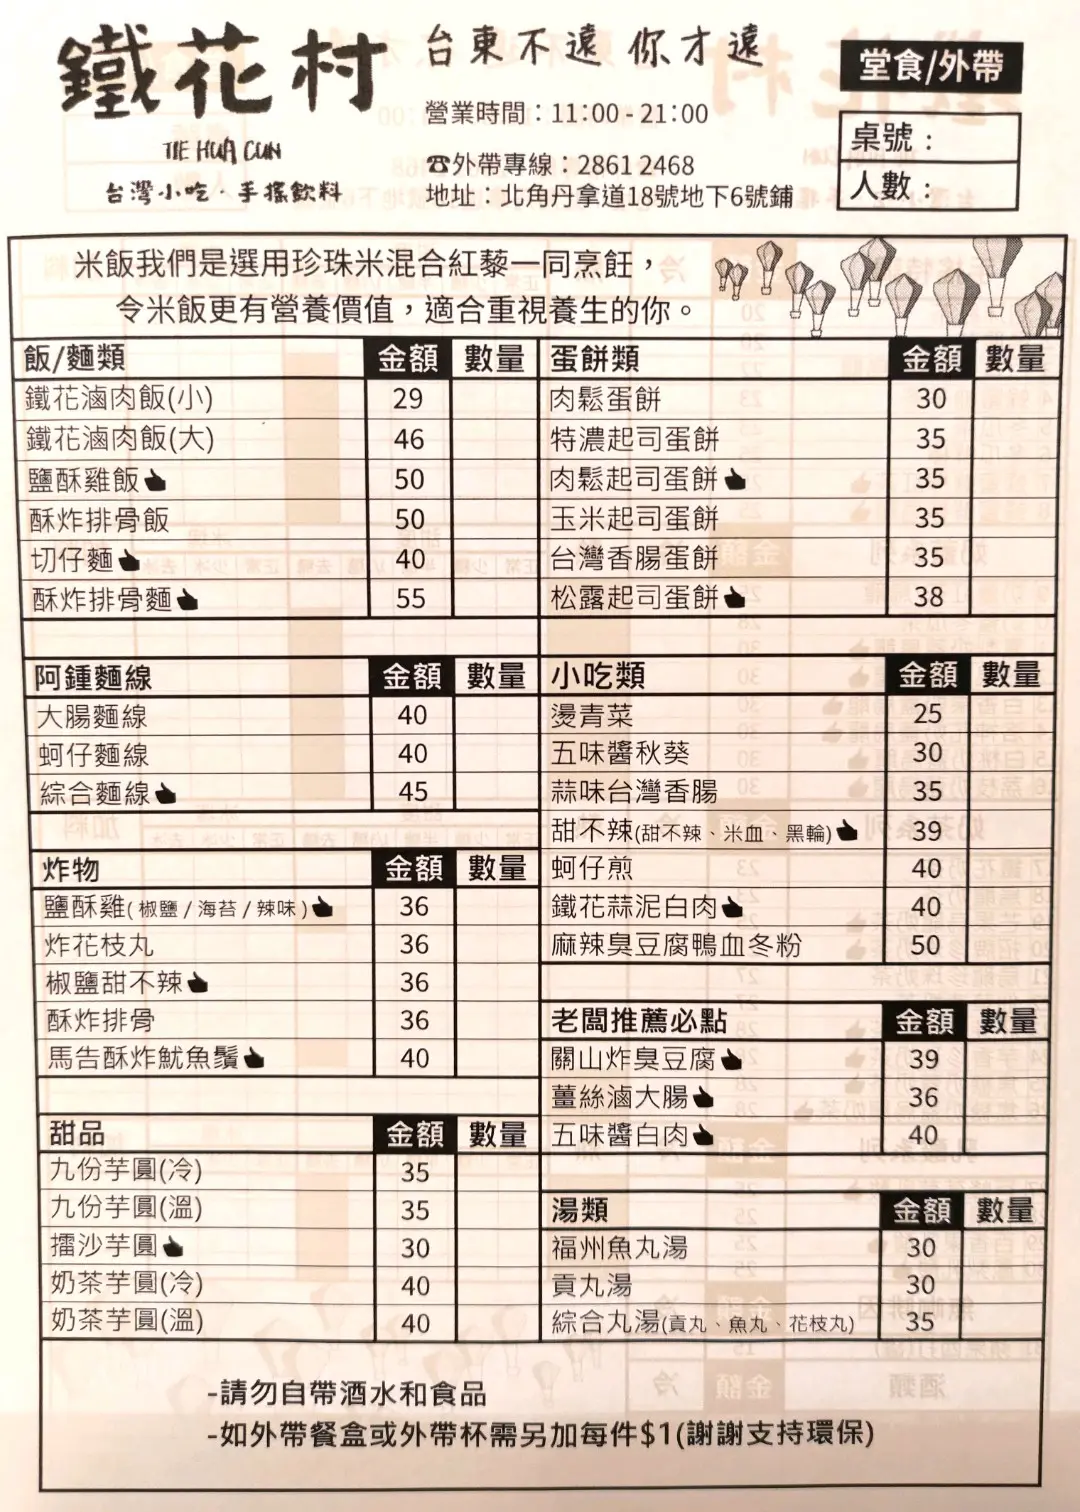 鐵花村
TIE HUA CUN
台灣小吃·手搖飲料
台東不遠 你才遠
營業時間：11:00 - 21:00
☎外帶專線：2861 2468
地址：北角丹拿道18號地下6號鋪
堂食/外帶
桌號：
人數：
米飯我們是選用珍珠米混合紅藜一同烹飪，
令米飯更有營養價值，適合重視養生的你。
飯/麵類 金額 數量
鐵花滷肉飯(小) 29
鐵花滷肉飯(大) 46
鹽酥雞飯 50
酥炸排骨飯 50
切仔麵 40
酥炸排骨麵 55
阿鍾麵線 金額 數量
大腸麵線 40
蚵仔麵線 40
綜合麵線 45
炸物 金額 數量
鹽酥雞(椒鹽/海苔/辣味) 36
炸花枝丸 36
椒鹽甜不辣 36
酥炸排骨 36
馬告酥炸魷魚鬚 40
甜品 金額 數量
九份芋圓(冷) 35
九份芋圓(溫) 35
擂沙芋圓 30
奶茶芋圓(冷) 40
奶茶芋圓(溫) 40
蛋餅類 金額 數量
肉鬆蛋餅 30
特濃起司蛋餅 35
肉鬆起司蛋餅 35
玉米起司蛋餅 35
台灣香腸蛋餅 35
松露起司蛋餅 38
小吃類 金額 數量
燙青菜 25
五味醬秋葵 30
蒜味台灣香腸 35
甜不辣(甜不辣、米血、黑輪) 39
蚵仔煎 40
鐵花蒜泥白肉 40
麻辣臭豆腐鴨血冬粉 50
老闆推薦必點 金額 數量
關山炸臭豆腐 39
薑絲滷大腸 36
五味醬白肉 40
湯類 金額 數量
福州魚丸湯 30
貢丸湯 30
綜合丸湯(貢丸、魚丸、花枝丸) 35
-請勿自帶酒水和食品
-如外帶餐盒或外帶杯需另加每件$1(謝謝支持環保)